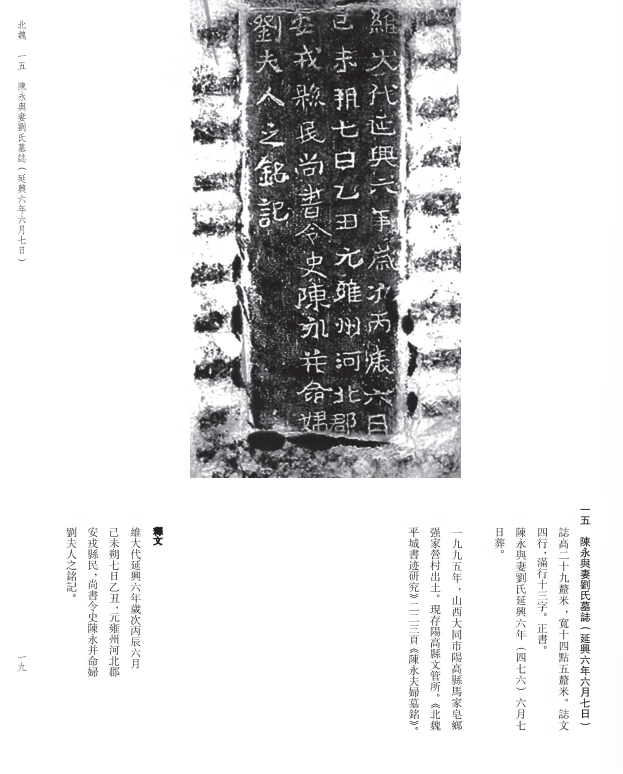 維大代延興六年歲次丙辰六月
己未朔七日乙丑元雍州河北郡
安戎縣民尚書令史陳永并命婦
劉夫人之銘記
一五　陳永與妻劉氏墓誌（延興六年六月七日）
誌高二十九釐米，寬十四點五釐米。誌文
四行，滿行十三字。正書。
陳永與妻劉氏延興六年（四七六）六月七
日葬。
一九九五年，山西大同市陽高縣馬家皂鄉
强家營村出土。現存陽高縣文管所。《北魏
平城書迹研究》二二三頁《陳永夫婦墓銘》。
釋文
維大代延興六年歲次丙辰六月
己未朔七日乙丑，元雍州河北郡
安戎縣民，尚書令史陳永并命婦
劉夫人之銘記。
北魏　一五　陳永與妻劉氏墓誌（延興六年六月七日）
一九